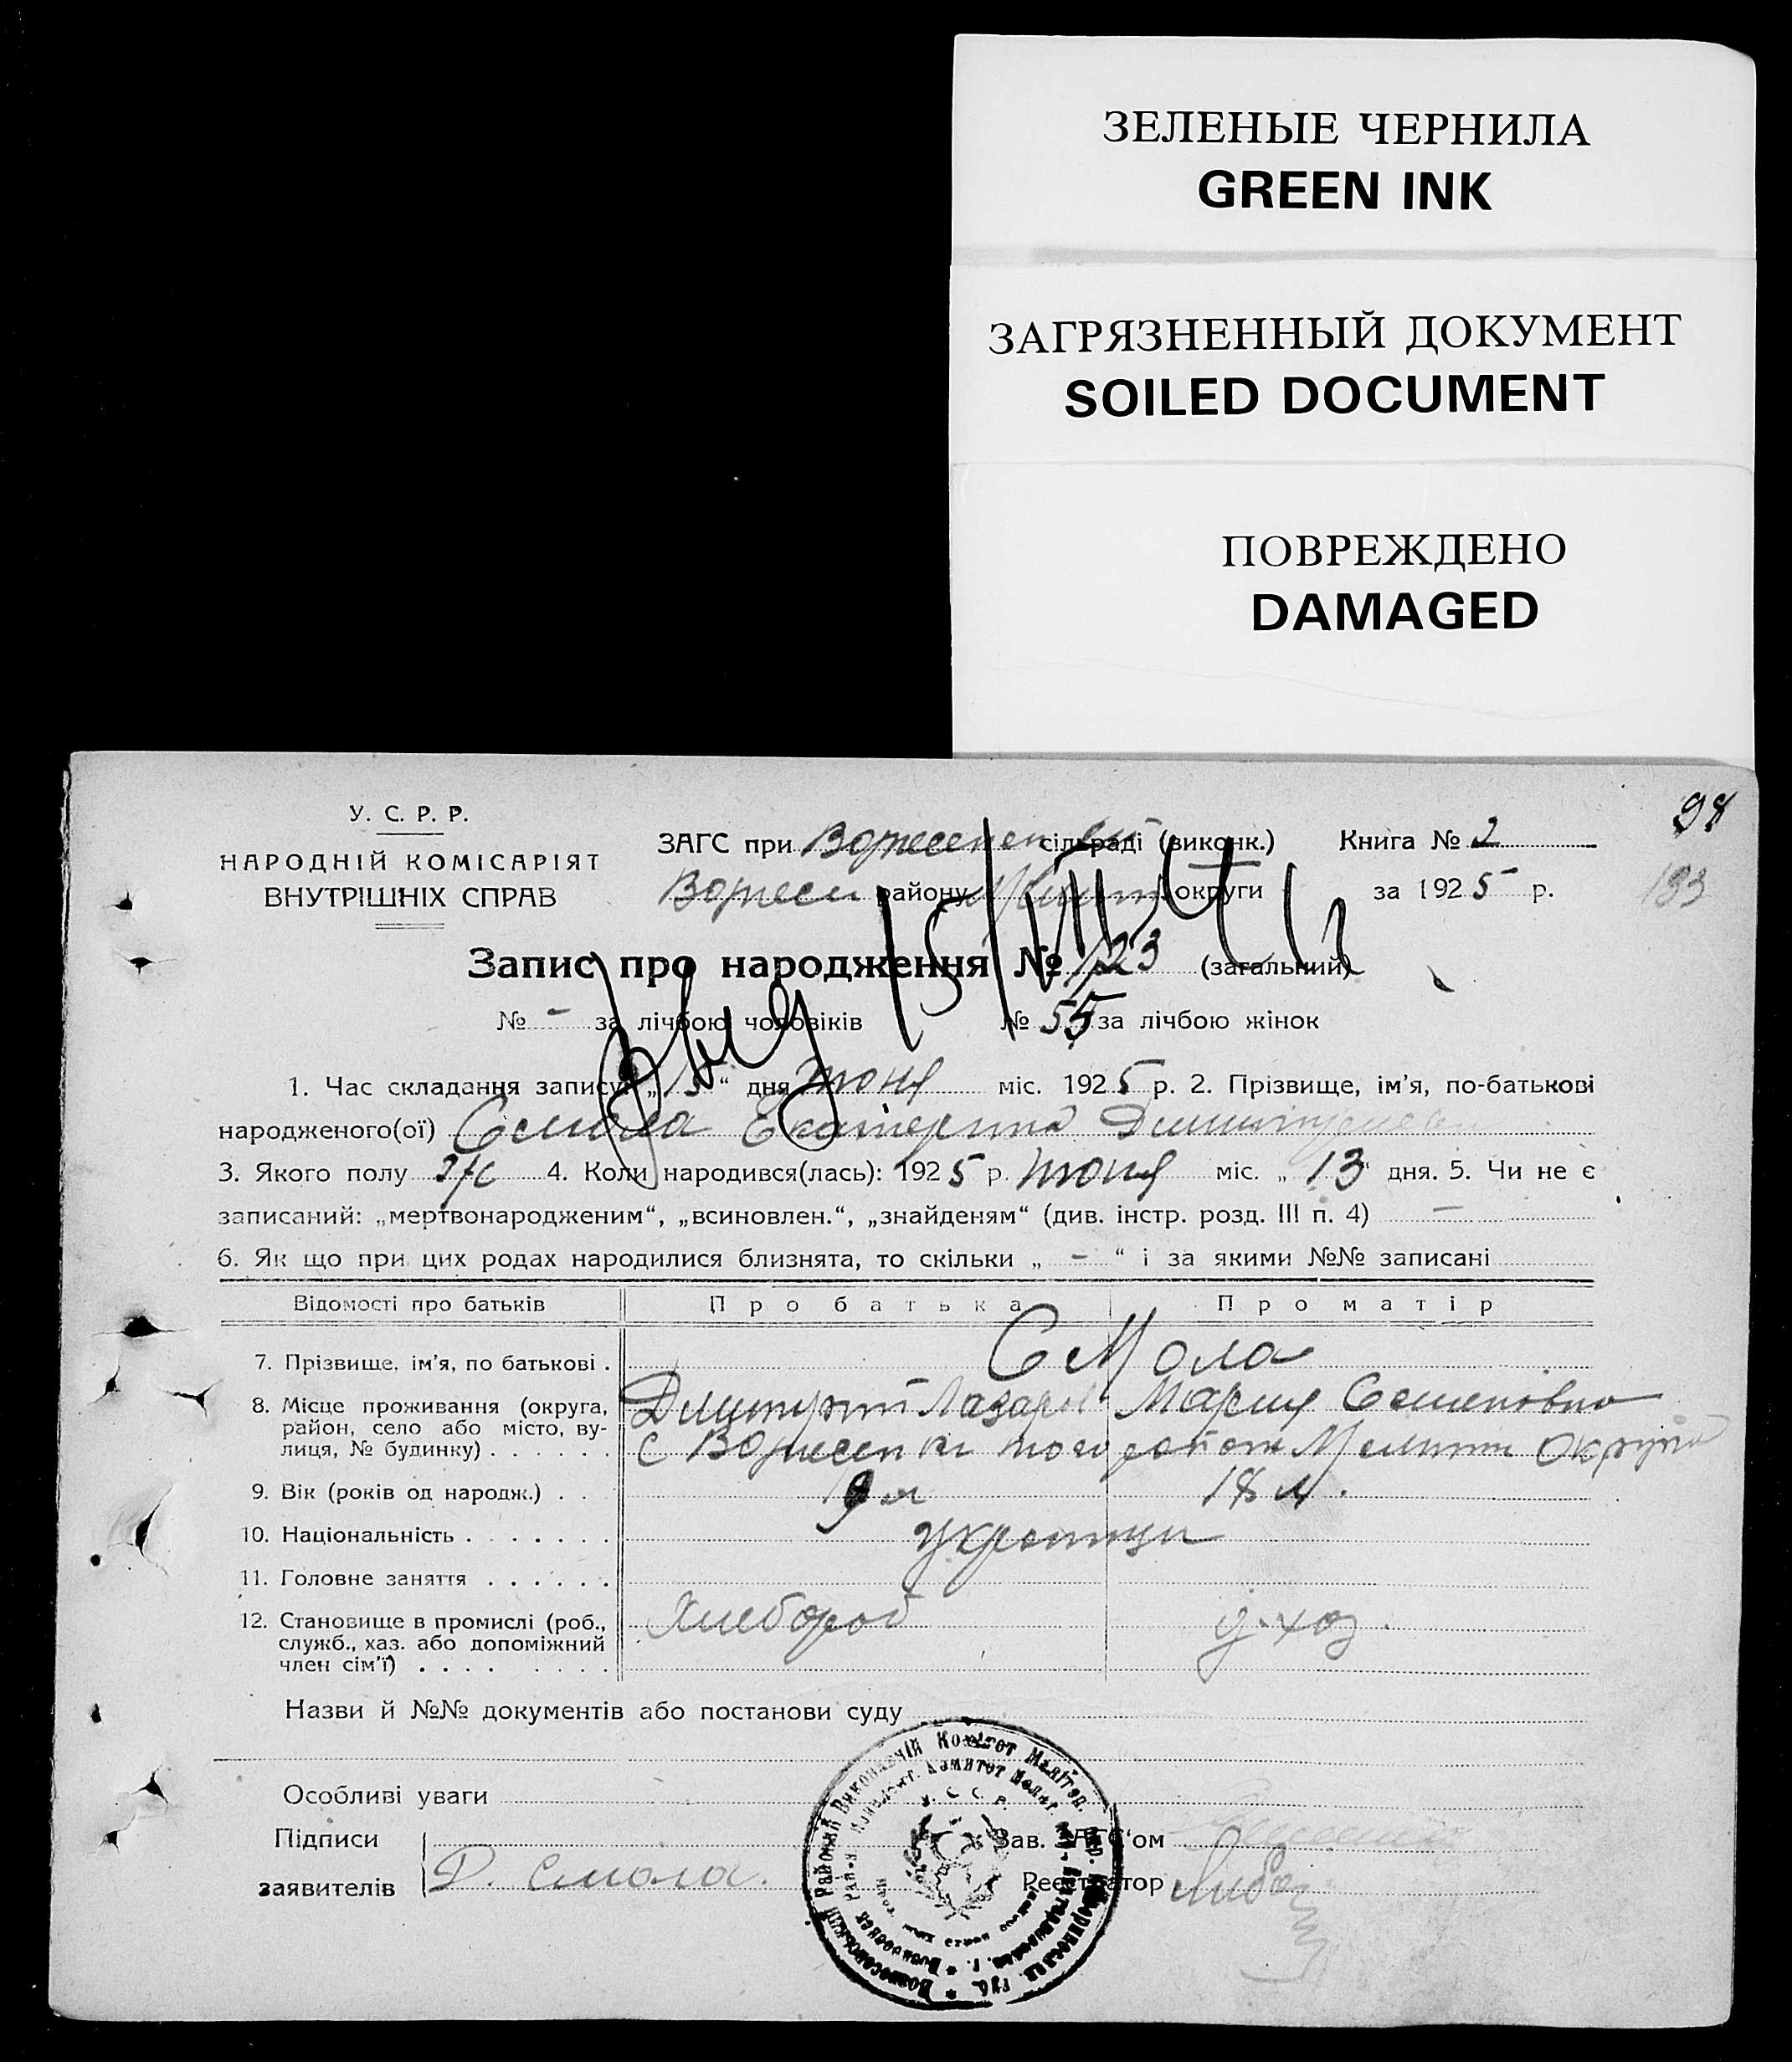 ЗЕЛЕНЫЕ ЧЕРНИЛА
GREEN INK
ЗАГРЯЗНЕННЫЙ ДОКУМЕНТ
SOILED DOCUMENT
ПОВРЕЖДЕНО
DAMAGED
98
193
У. С. Р. Р.
НАРОДНІЙ КОМІСАРІЯТ
ВНУТРІШНІХ СПРАВ
ЗАГС при сільраді (виконк.) Книга № 2
району округи за 1925 р.
Запис про народження № 123 (загальний)
№ - за лічбою чоловіків № 55 за лічбою жінок
1. Час складання запису „15“ дня июня міс. 1925 р. 2. Прізвище, ім'я, по-батькові
народженого(ої) Смола Екатерина
3. Якого полу ж 4. Коли народився(лась): 1925 р. июня міс. „13“ дня. 5. Чи не є
записаний: „мертвонародженим“, „всиновлен.“, „знайденям“ (див. інстр. розд. III п. 4) —
6. Як що при цих родах народилися близнята, то скільки „ - “ і за якими №№ записані
Відомості про батьків Про батька Про матір
7. Прізвище, ім'я, по батькові . Смола
8. Місце проживання (округа,
район, село або місто, ву-
лиця, № будинку) . . . . . .
Дмитрий Лазаров Мария Семеновна
с Вознесенка того района Мелитоп округи
9. Вік (років од народж.) . . 19 л 18 л.
10. Національність . . . . . . . украинцы
11. Головне заняття . . . . . .
12. Становище в промислі (роб.,
служб., хаз. або допоміжний
член сім'ї) . . . . . . . .
Хлебороб д.хоз.
Назви й №№ документів або постанови суду
Особливі уваги
Підписи
заявителів
Д. Смола.
Зав. ЗАГС'ом
Реєстратор